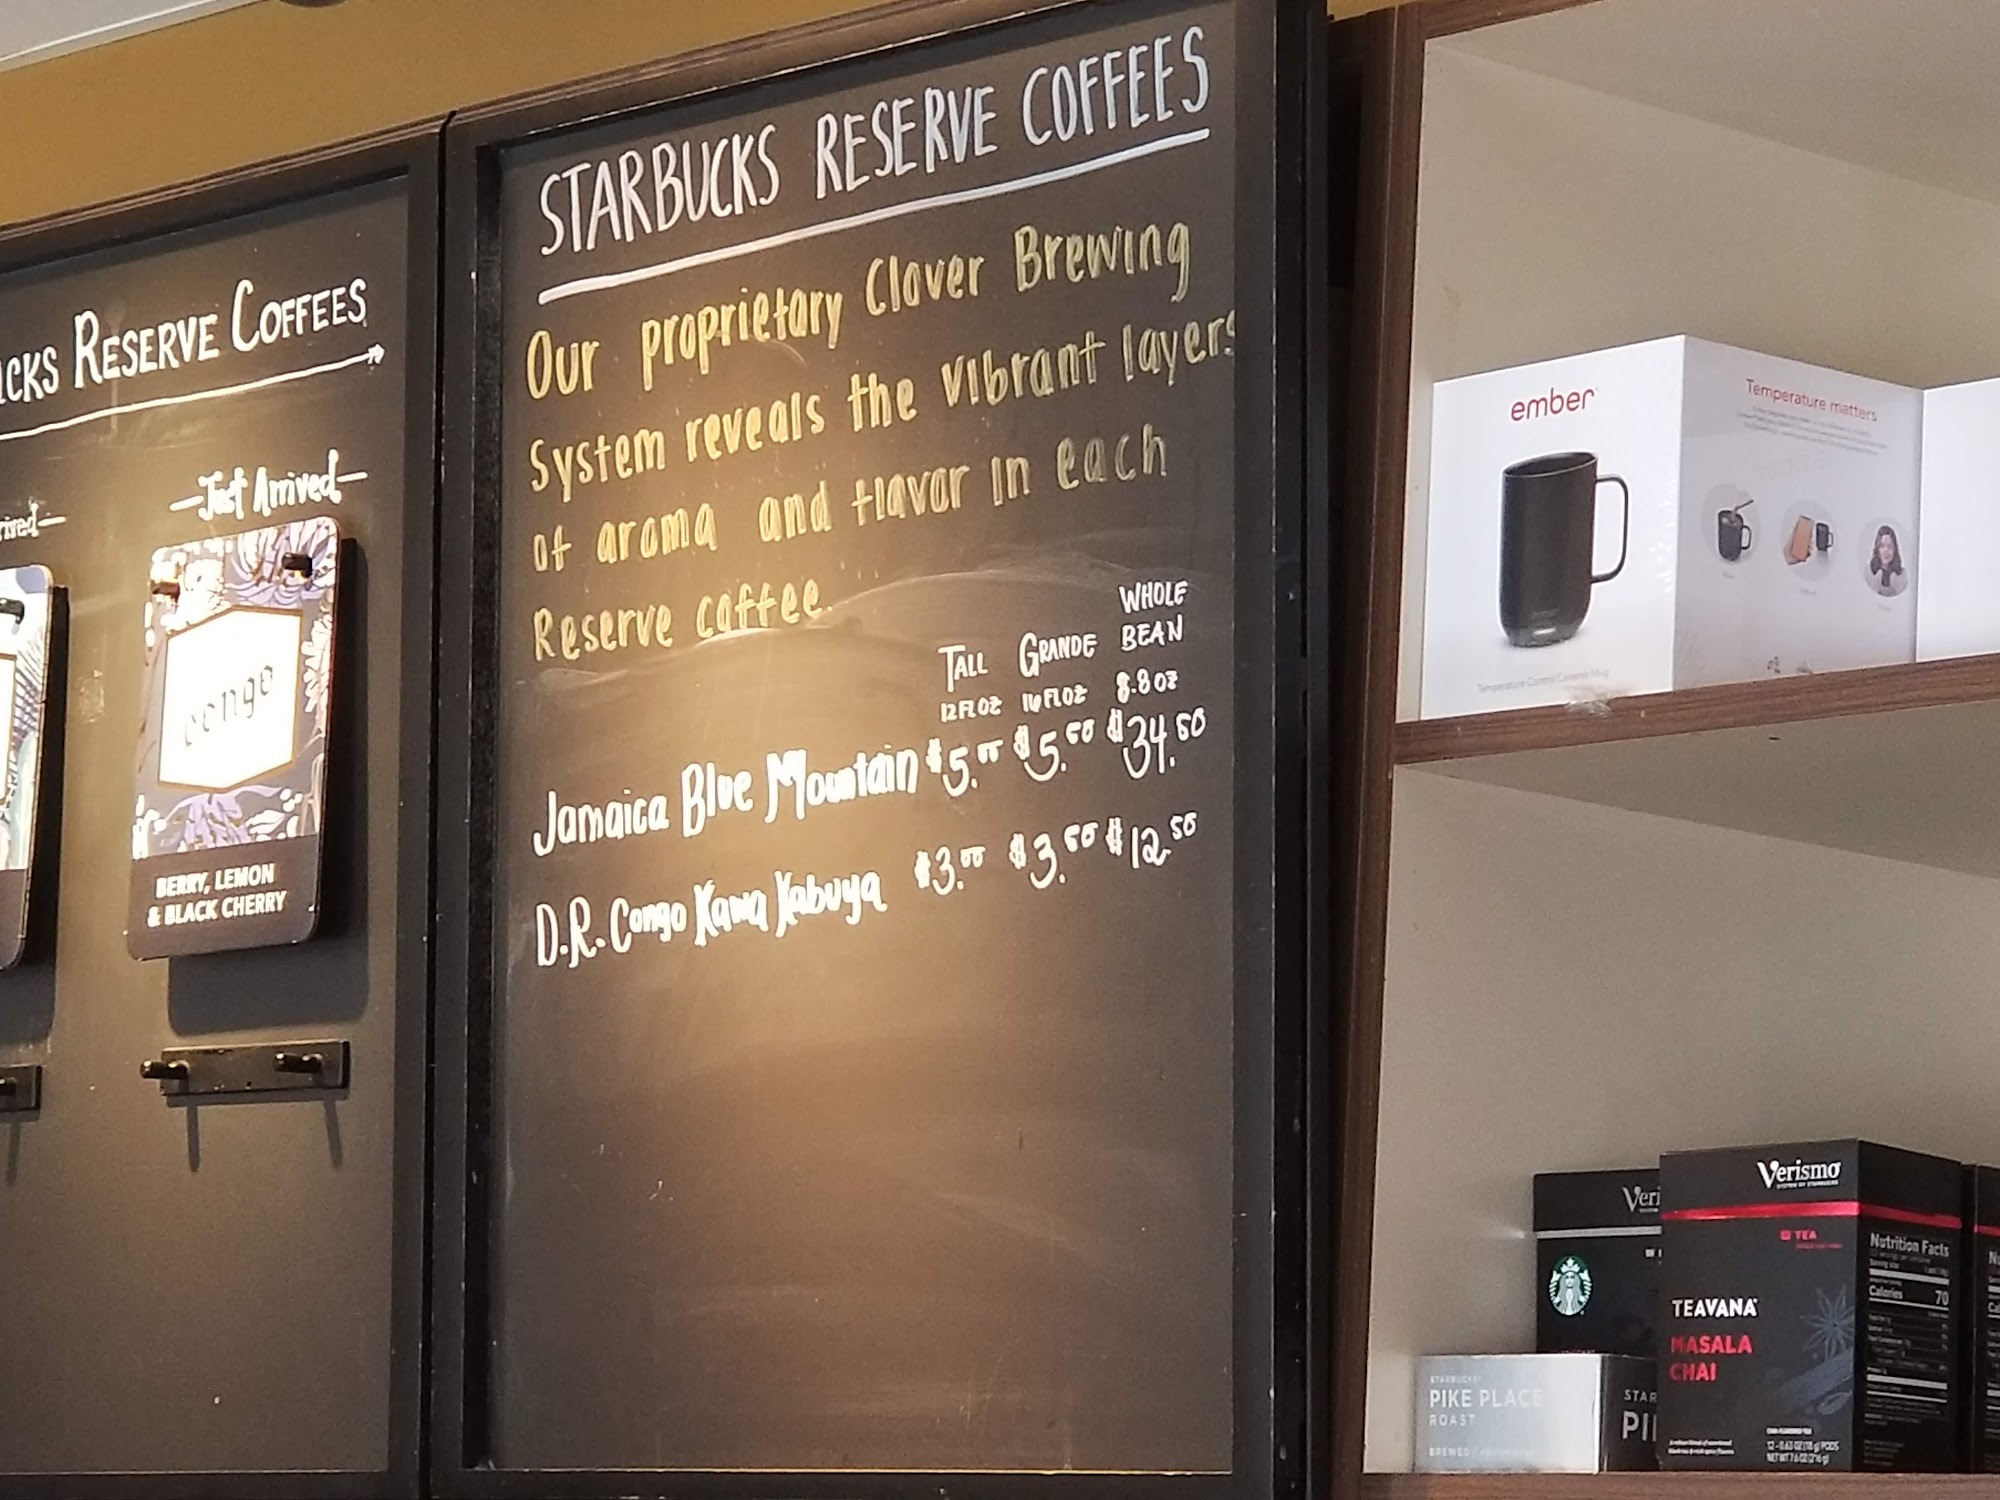 CKS RESERVE COFFEES
rived—
—Just Arrived—
congo
BERRY, LEMON
& BLACK CHERRY
STARBUCKS RESERVE COFFEES
Our proprietary Clover Brewing
System reveals the vibrant layers
of aroma and flavor in each
Reserve coffee.
TALL GRANDE WHOLE BEAN
12 FL OZ 16 FL OZ 8.8 OZ
Jamaica Blue Mountain $5.00 $5.50 $34.50
D.R. Congo Kawa Kabuya $3.00 $3.50 $12.50
ember
Temperature matters
Temperature Control Ceramic Mug
Veri
Verismo
SYSTEM BY STARBUCKS
TEA
TEAVANA
MASALA
CHAI
12 - 0.63 OZ (18 g) PODS
NET WT 7.6 OZ (216 g)
Nutrition Facts
Serving size
Calories 70
STARBUCKS
PIKE PLACE
ROAST
BREWED
STAR
PI